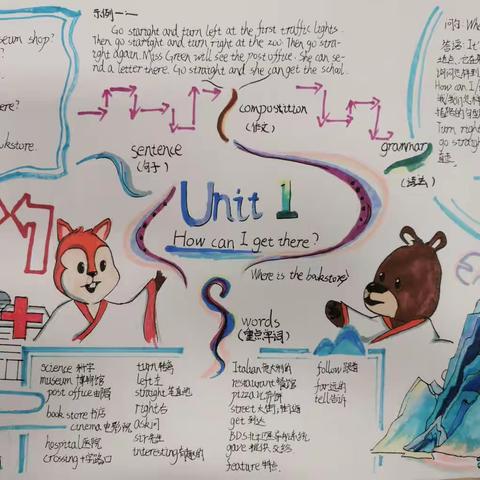 示例一:
Go staright and turn left at the first traffic lights.
Then go starlght and turn right at the zoo Then go stra-
ight again. Miss Green will see the post office. She can se-
nd a letter there. Go straight and she can get the school.
useum shop?
ere?
okstore.
问句: Whe
答语: It'
How can I
Turn right
go straigh
sentence
(句子)
composition
(作文)
grammar
(语法)
Unit 1
How can I get there?
Where is the bookstore?
words
(重点单词)
science 科学
museum 博物馆
post office 邮局
book store 书店
cinema 电影院
hospital 医院
crossing 十字路口
turn 转弯
left 左
straight 笔直地
right 右
ask 问
sir 先生
interesting 有趣的
Italian 意大利的
restaurant 餐馆
pizza 比萨饼
street 大街; 街道
get 到达
gave 提供 交给
feature 特点
follow 跟着
far 远的
tell 告诉